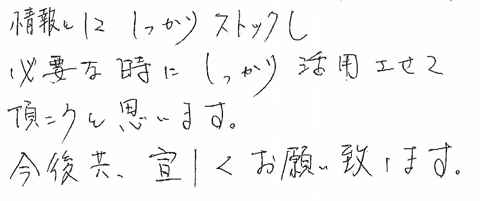 情報とに しっかり ストックし
必要な時に しっかり 活用させて
頂こうと思います。
今後共、宜しくお願い致します。